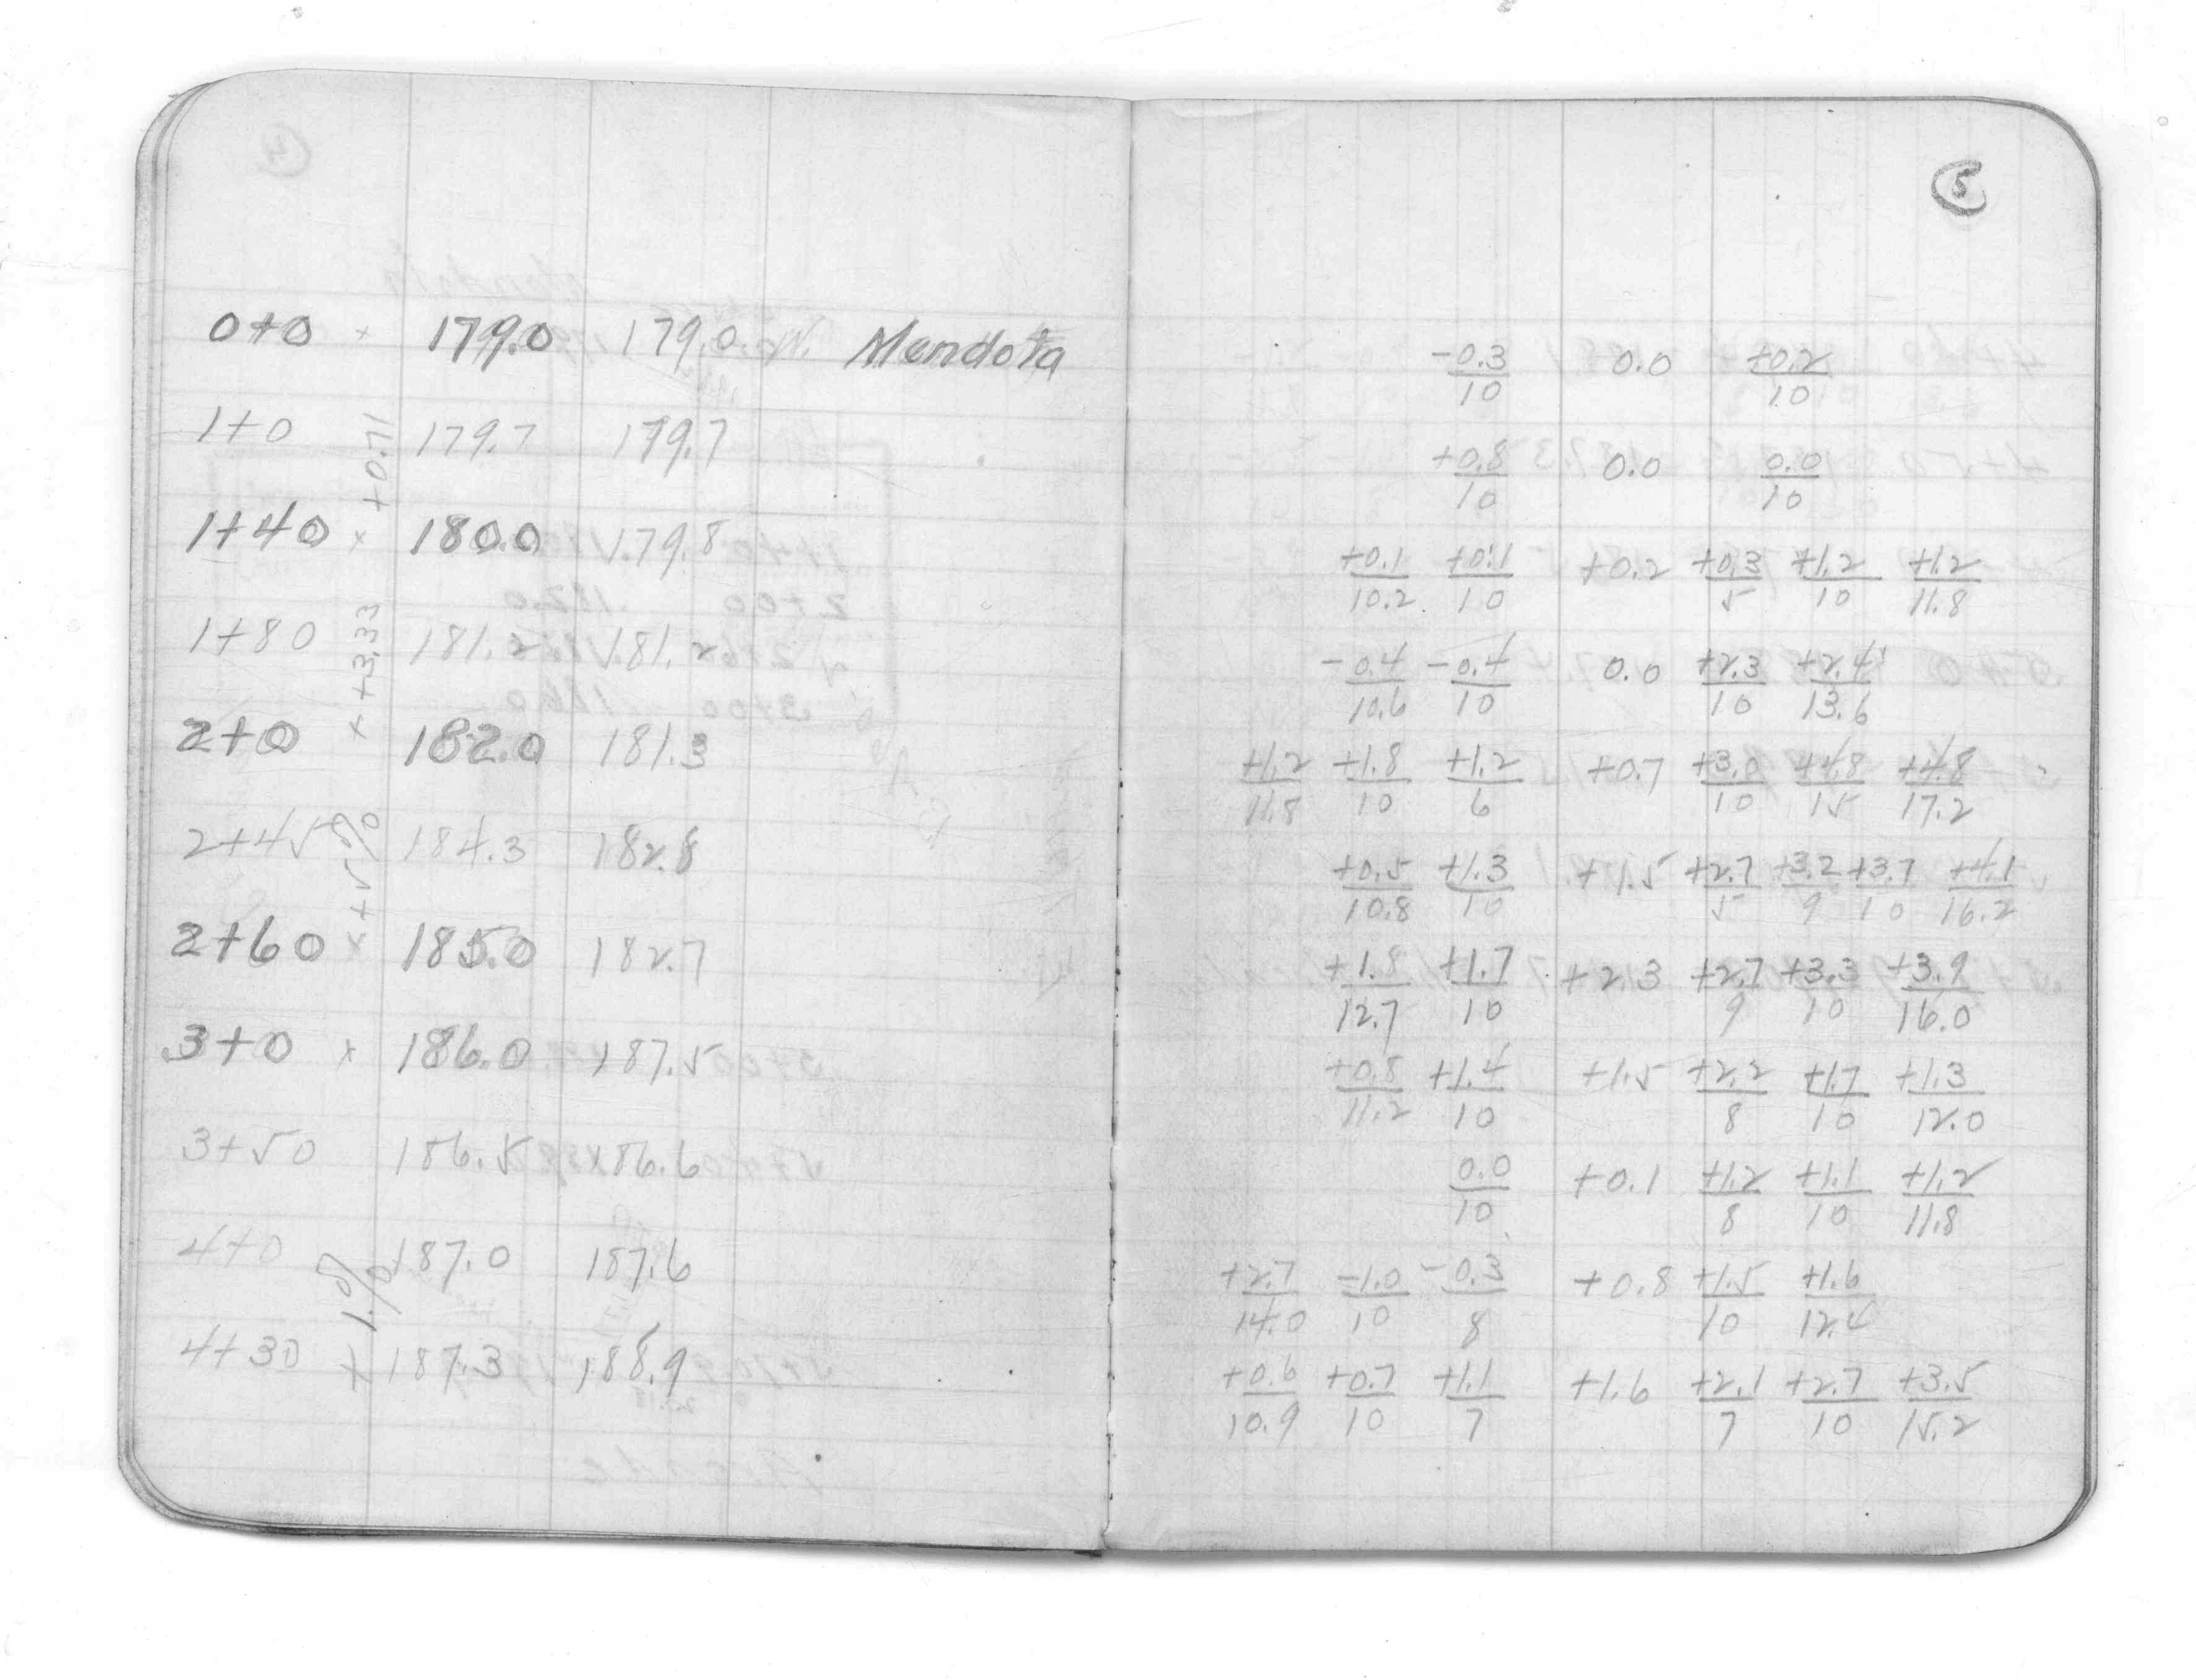 0+0 x 179.0 179.0 W. Mendota
1+0 179.7 179.7
+0.71
1+40 x 180.0 179.8
1+80 181.2 181.2
+3.33
2+0 x 182.0 181.3
2+45 184.3 182.8
2+60 x 185.0 182.7
3+0 x 186.0 187.5
3+50 186.5 186.6
4+0 187.0 187.6
+1.%
4+30 187.3 188.9
5
-0.3/10 0.0 +0.2/10
+0.8/10 0.0 0.0/10
+0.1/10.2 +0.1/10 +0.2 +0.3/5 +1.2/10 +1.2/11.8
-0.4/10.6 -0.4/10 0.0 +2.3/10 +2.4/13.6
+1.2/11.8 +1.8/10 +1.2/6 +0.7 +3.0/10 +4.8/15 +4.8/17.2
+0.5/10.8 +1.3/10 +1.5 +2.7/5 +3.2/9 +3.7/10 +4.1/16.2
+1.8/12.7 +1.7/10 +2.3 +2.7/9 +3.3/10 +3.9/16.0
+0.8/11.2 +1.4/10 +1.5 +2.2/8 +1.7/10 +1.3/12.0
0.0/10 +0.1 +1.2/8 +1.1/10 +1.2/11.8
+2.7/14.0 -1.0/10 -0.3/8 +0.8 +1.5/10 +1.6/12.4
+0.6/10.9 +0.7/10 +1.1/7 +1.6 +2.1/7 +2.7/10 +3.5/15.2